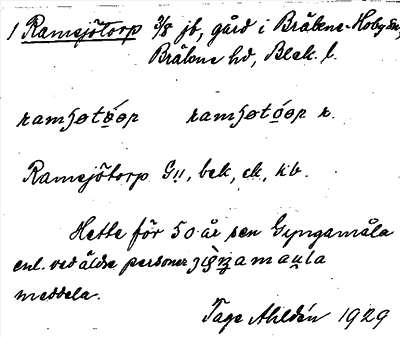 1 Ramsjötorp 3/8 jb, gård i Bräkne-Hoby sn,
Bräkne hd, Blek. l.
ramsjötorp G11, bek, ck, kb.
Hette för 50 år sen Gyngamåla
enl. ved äldre personer
meddela.
Tage Ahldén 1929